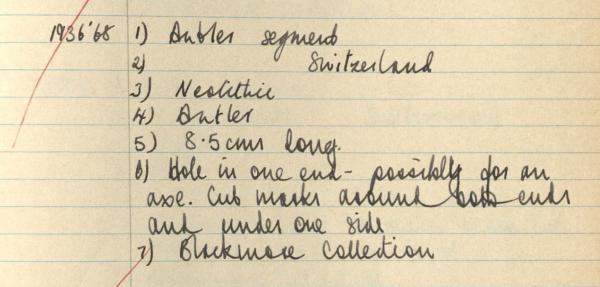 1936'68 1) Antler segment
2) Switzerland
3) Neolithic
4) Antler
5) 8.5cms long.
6) Hole in one end - possibly for an
axe. Cut marks around both ends
and under one side
7) Blackmore Collection